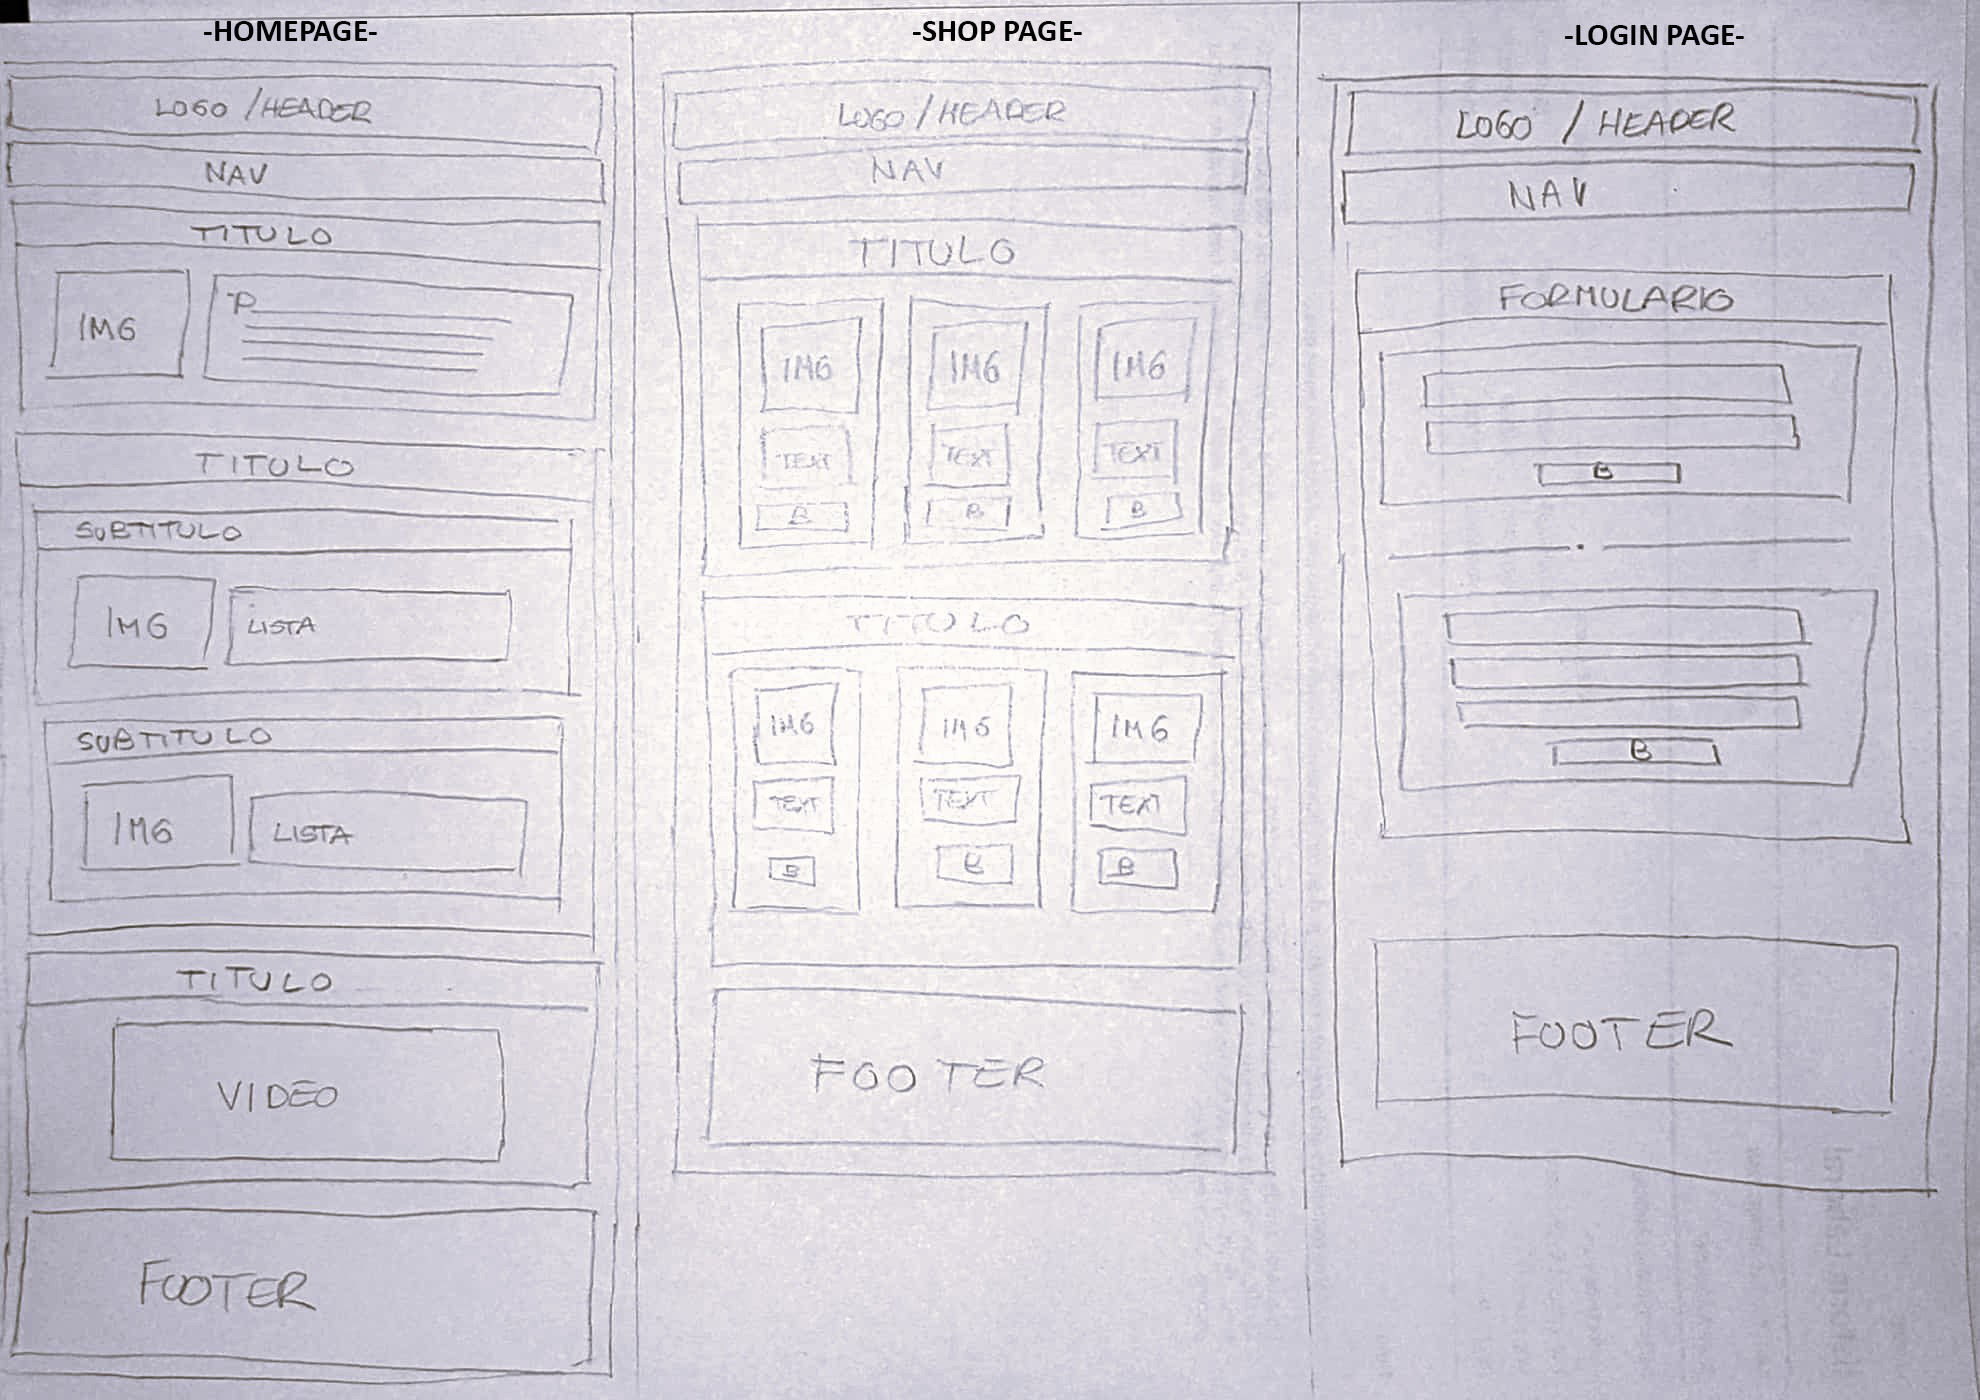 -HOMEPAGE-
LOGO /HEADER
NAV
TITULO
IMG
P
TITULO
SUBTITULO
IMG
LISTA
SUBTITULO
IMG
LISTA
TITULO
VIDEO
FOOTER
-SHOP PAGE-
LOGO / HEADER
NAV
TITULO
IMG IMG IMG
TEXT TEXT TEXT
B B B
TITULO
IMG IMG IMG
TEXT TEXT TEXT
B B B
FOOTER
-LOGIN PAGE-
LOGO / HEADER
NAV
FORMULARIO
B
B
FOOTER